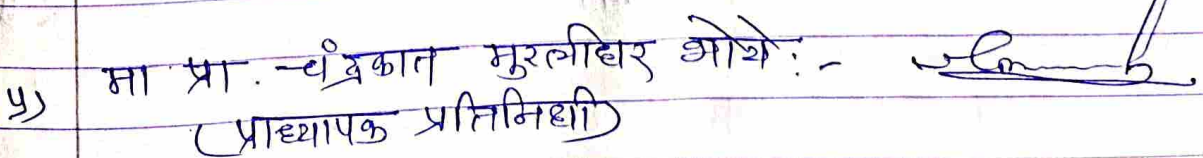 ५) मा प्रा. चंद्रकात मुरलीधर भोये :-
(प्राध्यापक प्रतिनिधी)